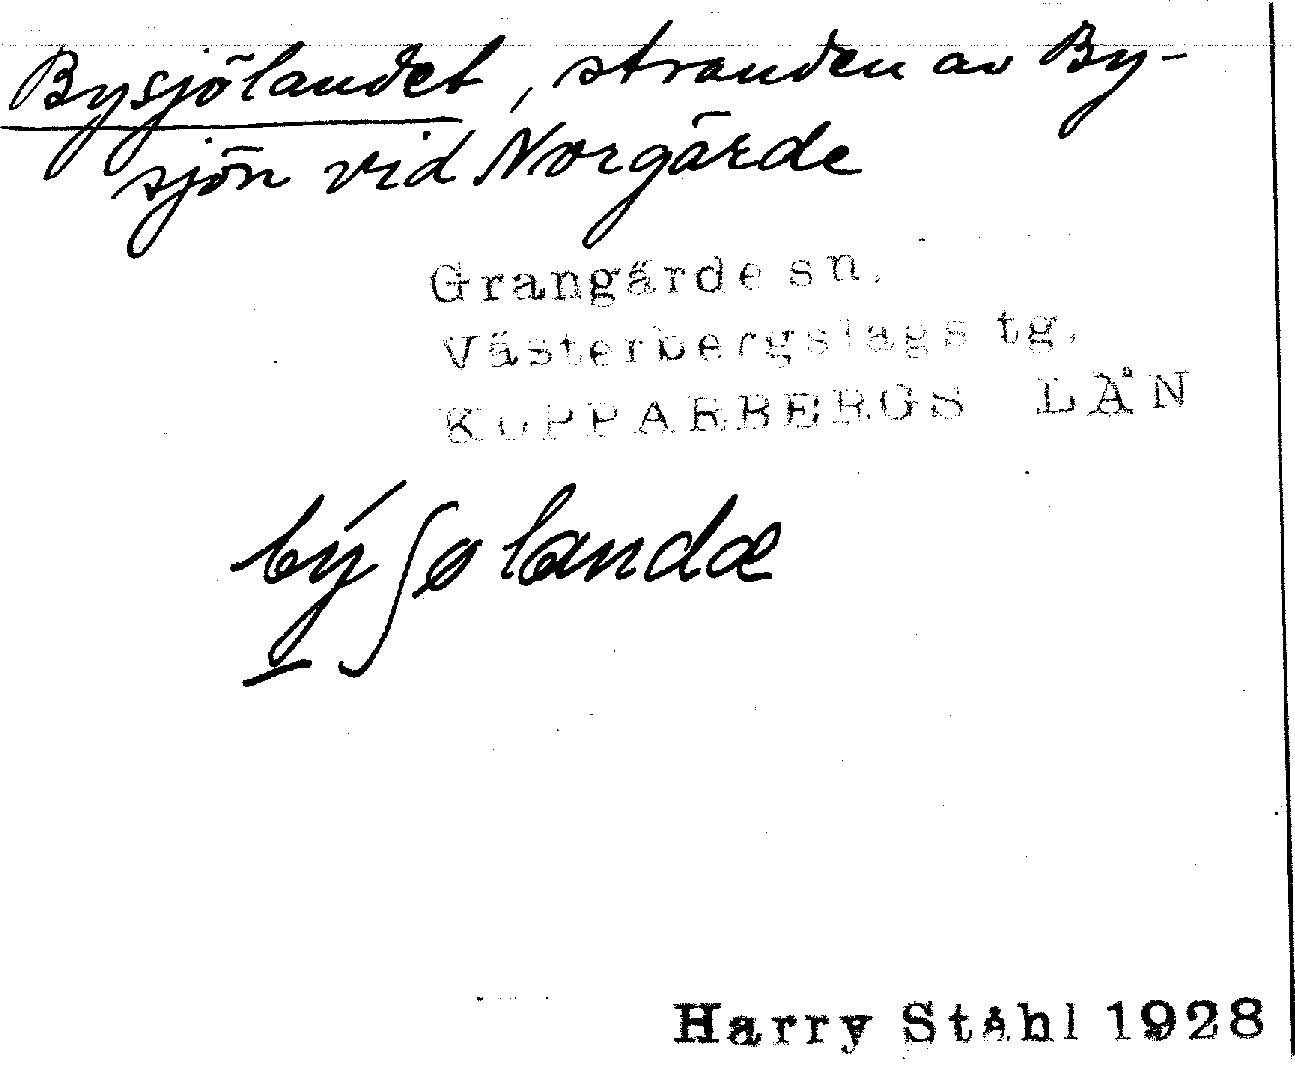 Bysjölandet, stranden av By-
sjön vid Norgärde
Grangärde sn.
Västerbergslags tg.
KOPPARBERGS LÄN
bý̱ʃølandæ
Harry Ståhl 1928